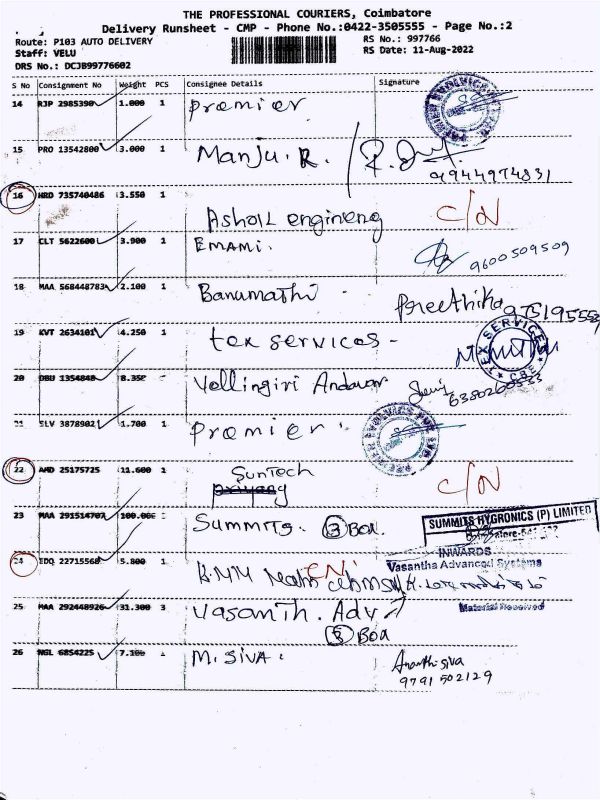 THE PROFESSIONAL COURIERS, Coimbatore
Delivery Runsheet - CMP - Phone No.:0422-3505555 - Page No.:2
Route: P103 AUTO DELIVERY
RS No.: 997766
Staff: VELU
RS Date: 11-Aug-2022
DRS No.: DCJB99776602
S No Consignment No Weight PCS Consignee Details Signature
14 RJP 2985390 1.000 1 Premier
15 PRO 13542800 3.000 1 Manju.R.
9944974831
16 HRD 735740486 3.550 1 Ashok engineng C/N
17 CLT 5622600 3.900 1 EMAMI. 9600509509
18 MAA 568448783 2.100 1 Banumathi Preethika
19 KVT 2634101 4.250 1 tex services - TEX SERVICES CBE
20 1354848 8.350 Vellingiri Andavar 6380260533
21 SLV 3878902 1.700 1 Premier
22 AMD 25175725 11.600 1 SunTech C/N
23 MAA 291514707 100.000 Summits. 3 Box. SUMMITS HYGRONICS (P) LIMITED
INWARDS
24 22715568 5.800 1 K.MM C/N Vasantha Advanced Systems
25 MAA 292448926 31.300 3 Vasanth. Adv Material Received
3 Box
26 NGL 6854225 7.100 1 M. SIVA. Ananthi siva
9791502129